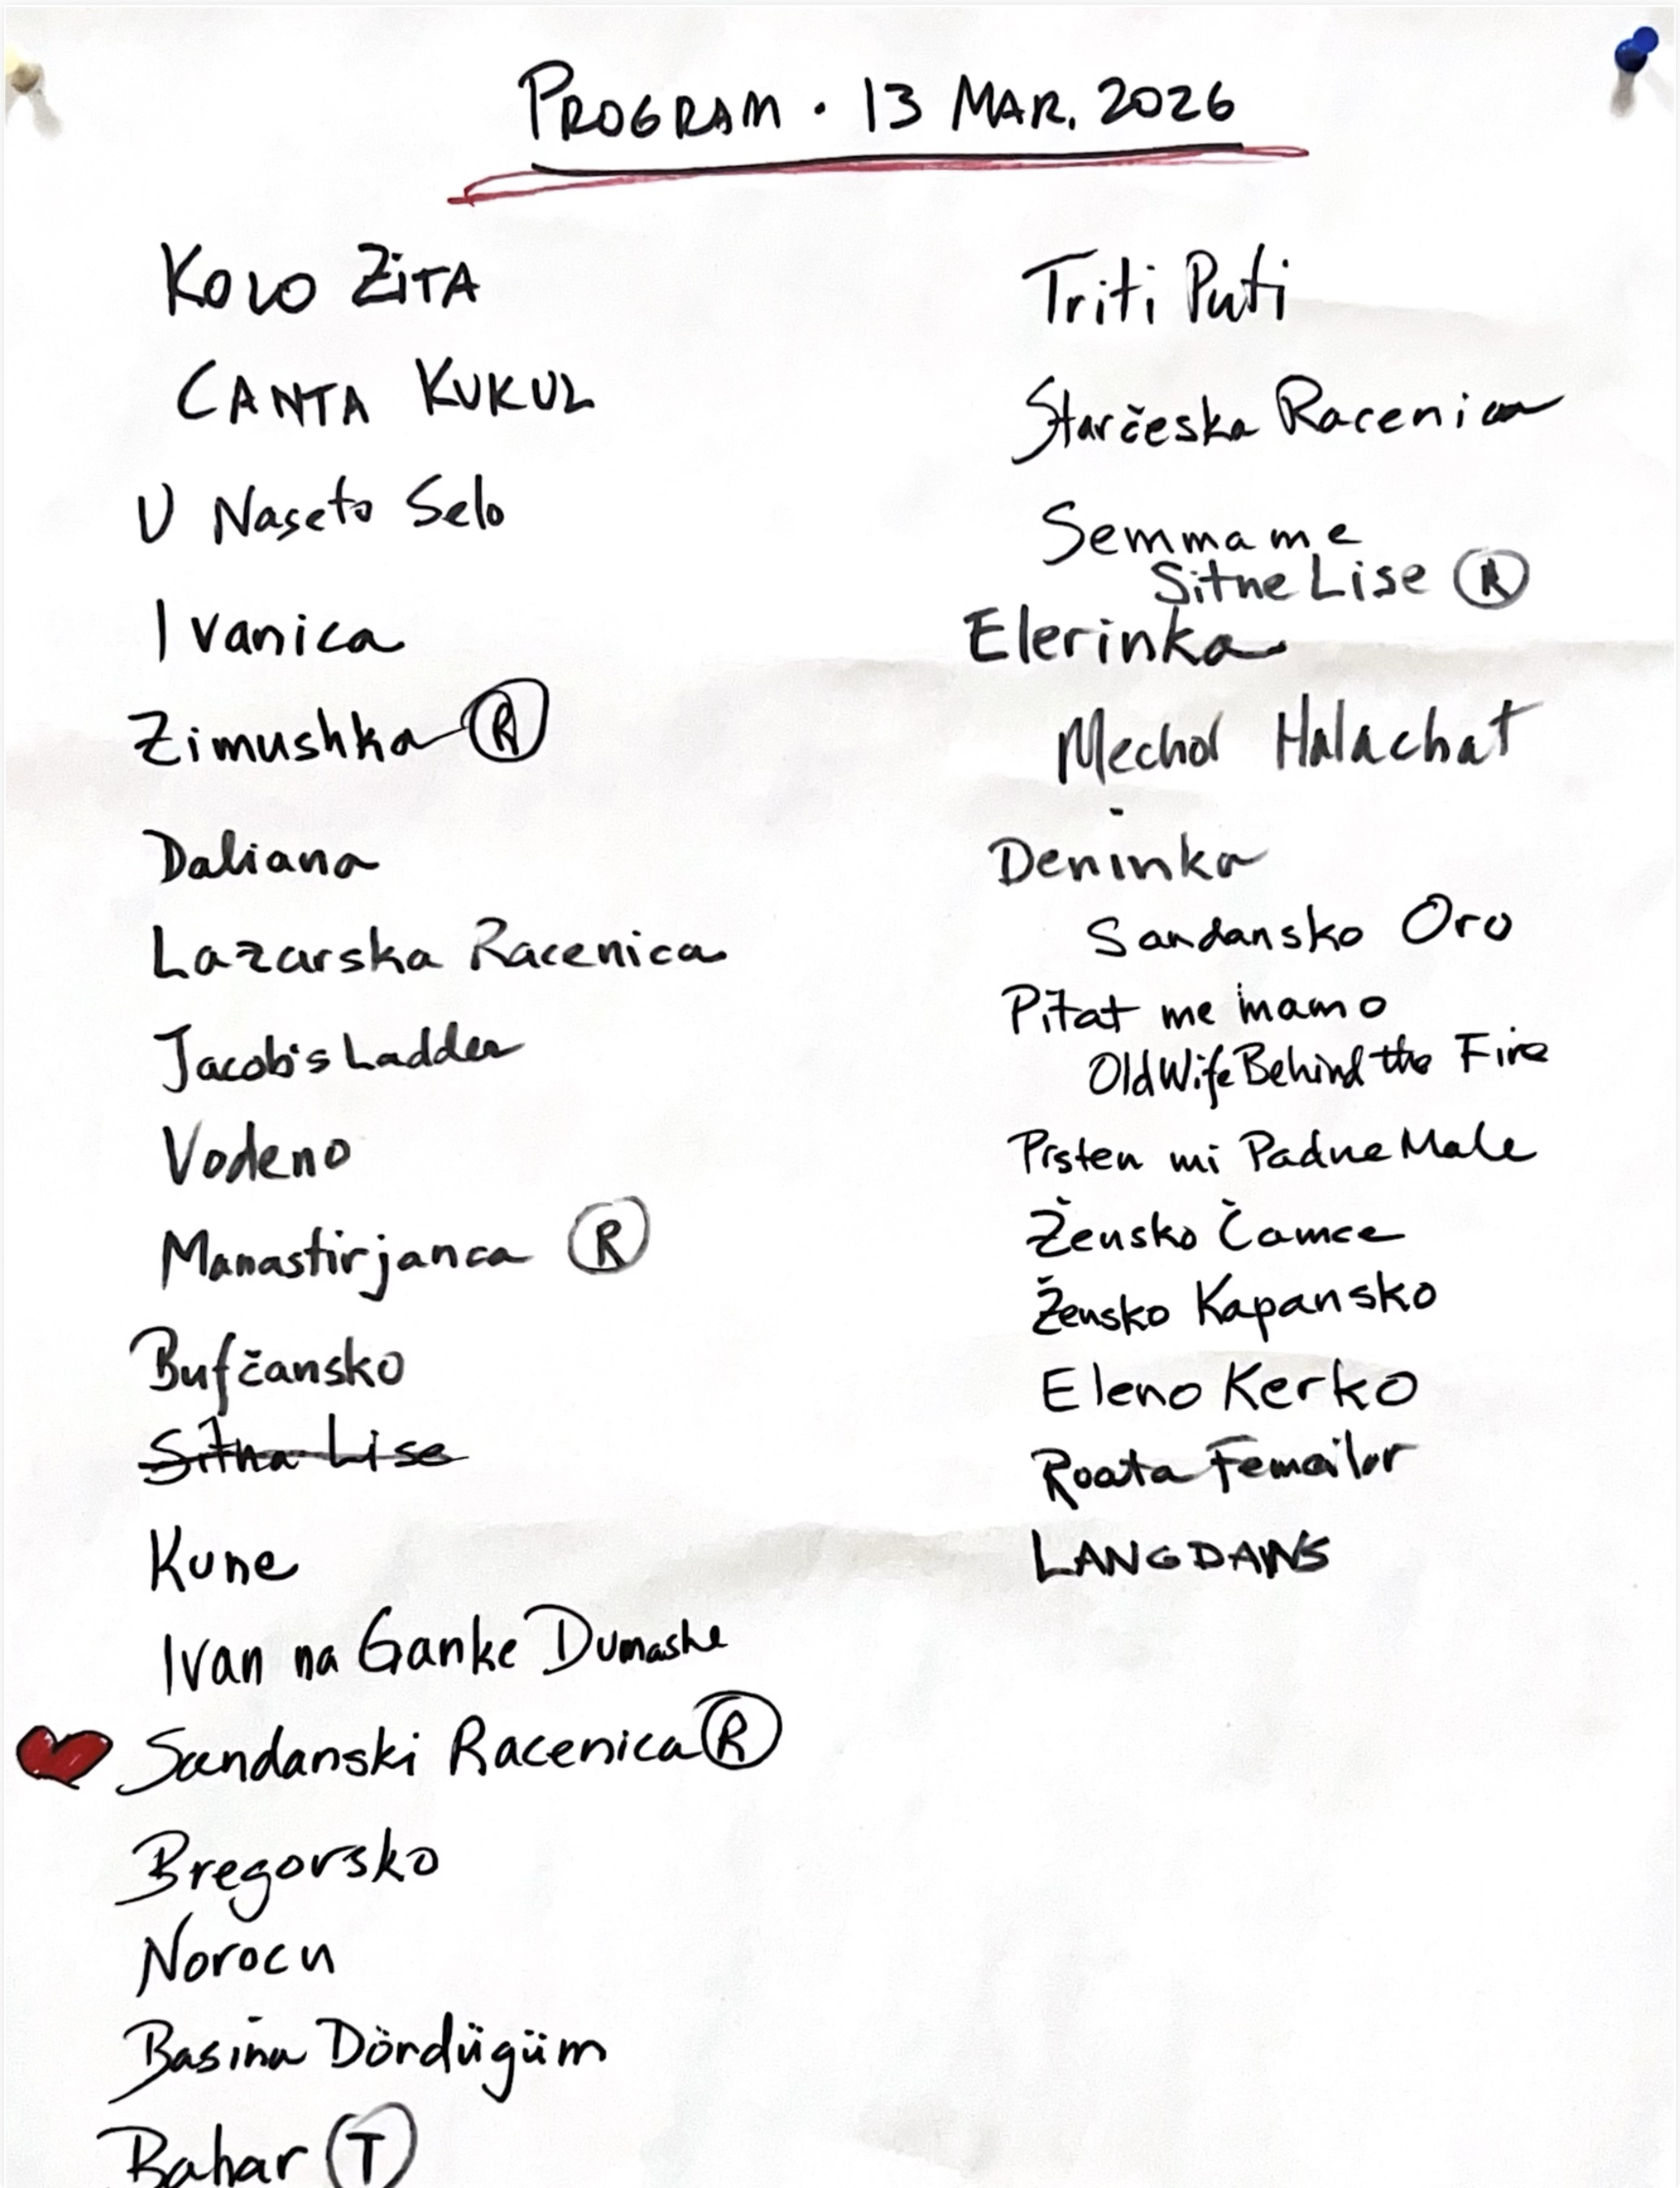 PROGRAM · 13 MAR. 2026
KOLO ZiTA
CANTA KUKUL
U Naseto Selo
Ivanica
Zimushka Ⓡ
Daliana
Lazarska Racenica
Jacob's Ladder
Vodeno
Manastirjanca Ⓡ
Bufčansko
Sitna Lise
Kune
Ivan na Ganke Dumashe
Sandanski Racenica Ⓡ
Bregorsko
Norocu
Basina Dördügüm
Bahar Ⓣ
Triti Puti
Starčeska Racenica
Semmame
Sitne Lise Ⓡ
Elerinka
Mechol Halachat
Deninka
Sandansko Oro
Pitat me mamo
Old Wife Behind the Fire
Prsten mi Padne Male
Žensko Čamce
Žensko Kapansko
Eleno Kerko
Roata Femeilor
LANGDANS